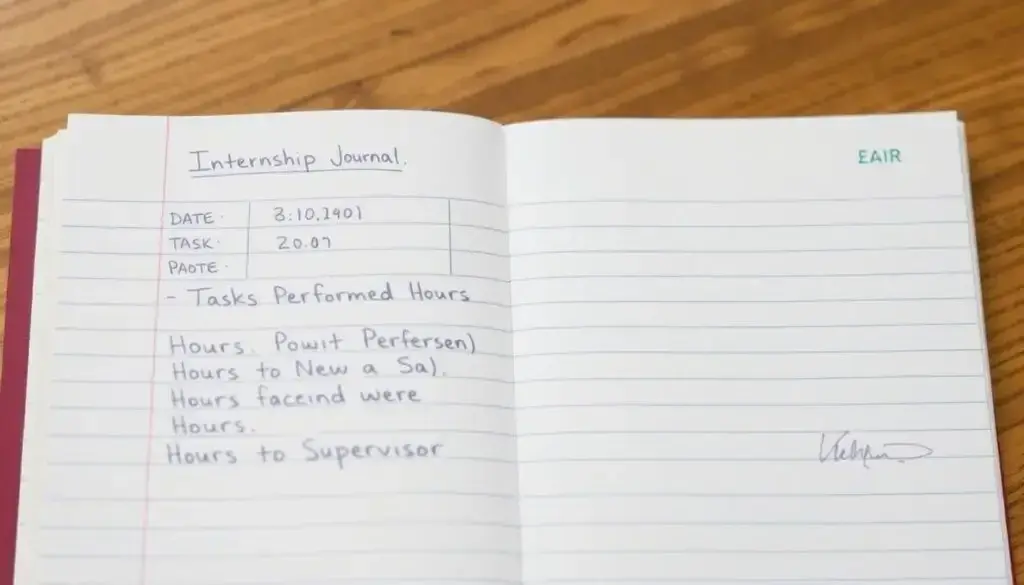 Internship Journal.
EAIR
DATE· 3:10.1901
TASK· 20.07
PAOTE·
- Tasks Performed Hours
Hours. Powit Perfersen)
Hours to New a Sa).
Hours faceind were
Hours.
Hours to Supervisor